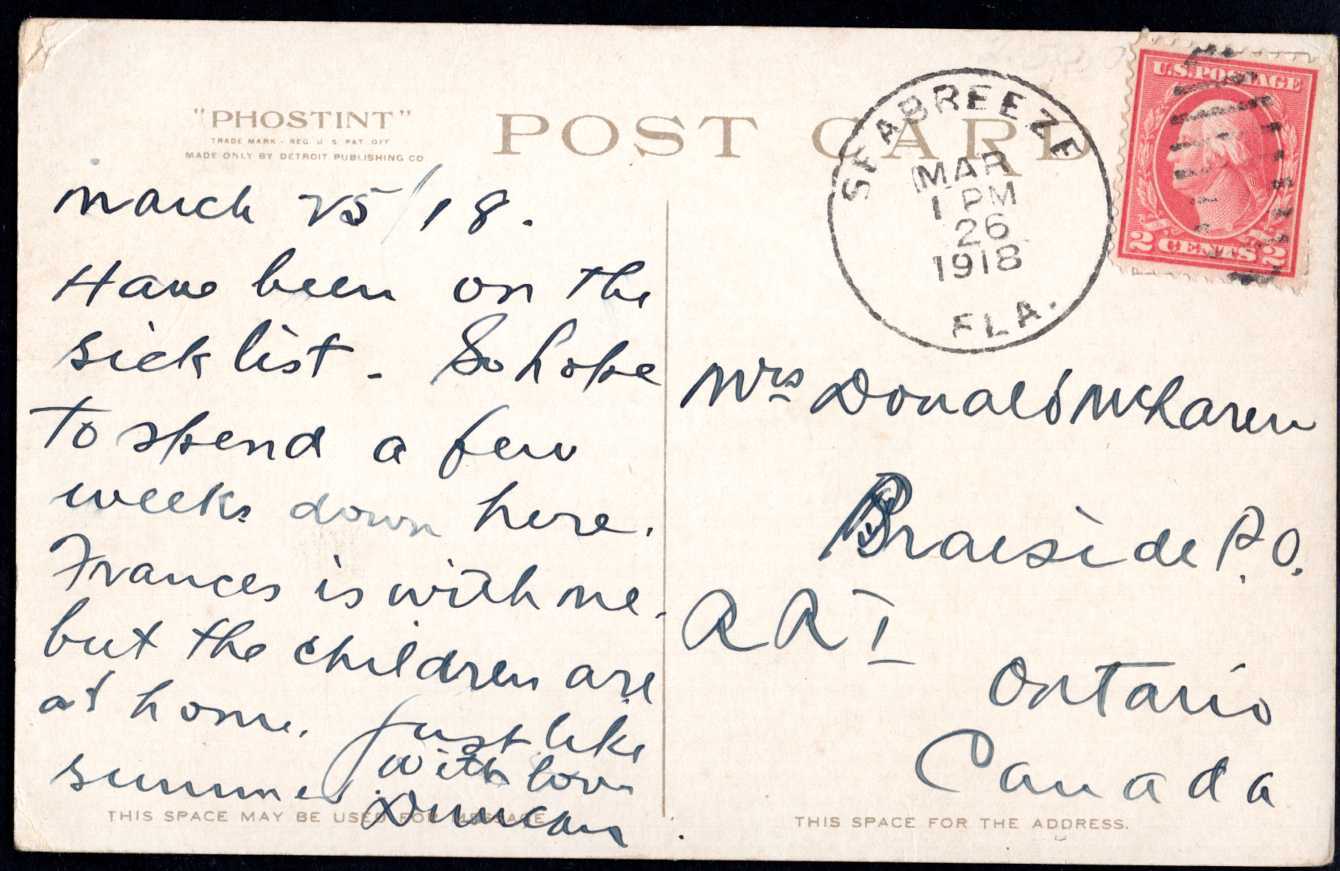 "PHOSTINT"
TRADE MARK - REG. U.S. PAT. OFF
MADE ONLY BY DETROIT PUBLISHING CO
POST CARD
SEABREEZE
MAR
1 PM
26
1918
FLA.
U.S. POSTAGE
2 CENTS 2
March 25/18.
Have been on the
sick list. So hope
to spend a few
weeks down here.
Frances is with me.
but the children are
at home. Just like
summer
with love
Duncan
THIS SPACE MAY BE USED FOR MESSAGE
Mrs Donald McLaren
Braeside P.O.
R R 1
Ontario
Canada
THIS SPACE FOR THE ADDRESS.